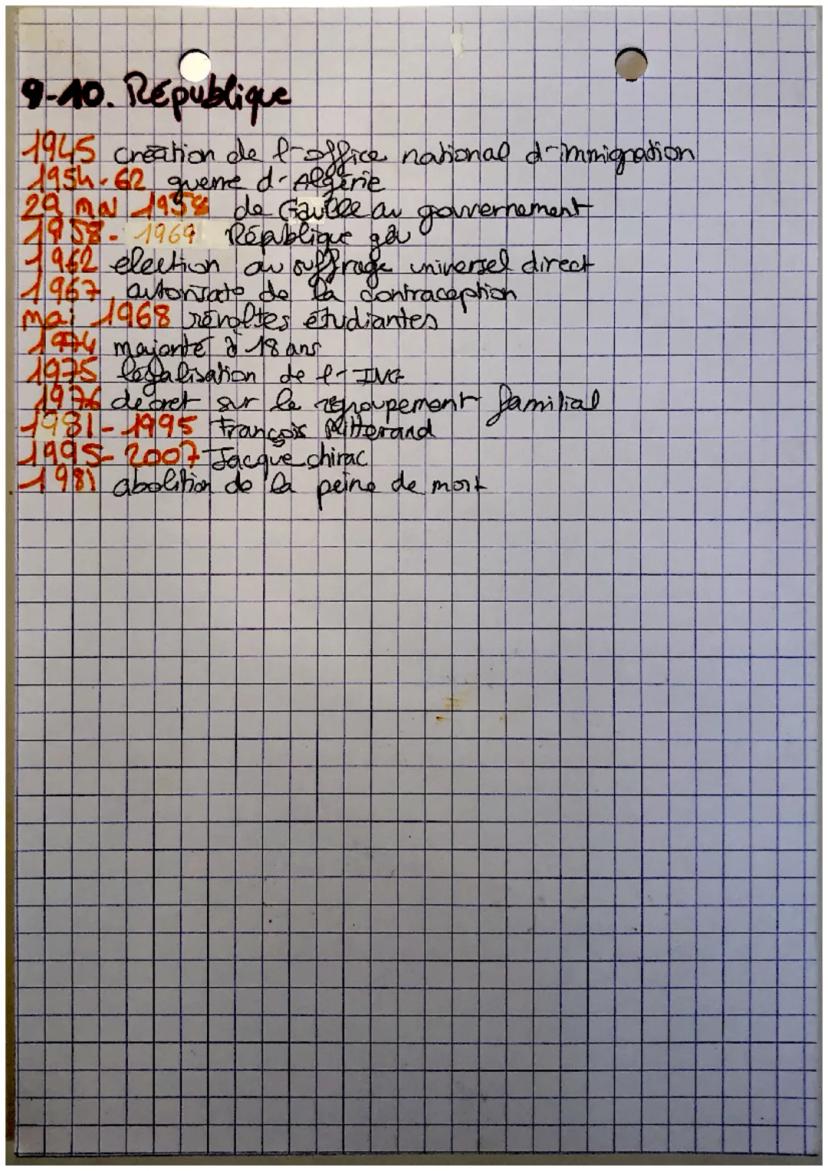 9-10. République
1945 création de l'office national d'immigration
1954-62 guerre d'Algérie
29 mai 1958 de Gaulle au gouvernement
1958-1969 République
1962 election au suffrage universel direct
1967 de la contraception
mai 1968 révoltes étudiantes
1974 majorité à 18 ans
1975 légalisation de l'IVG
1976 décret sur le regroupement familial
1981-1995 François Mitterand
1995-2007 Jacque chirac
1981 abolition de la peine de mort